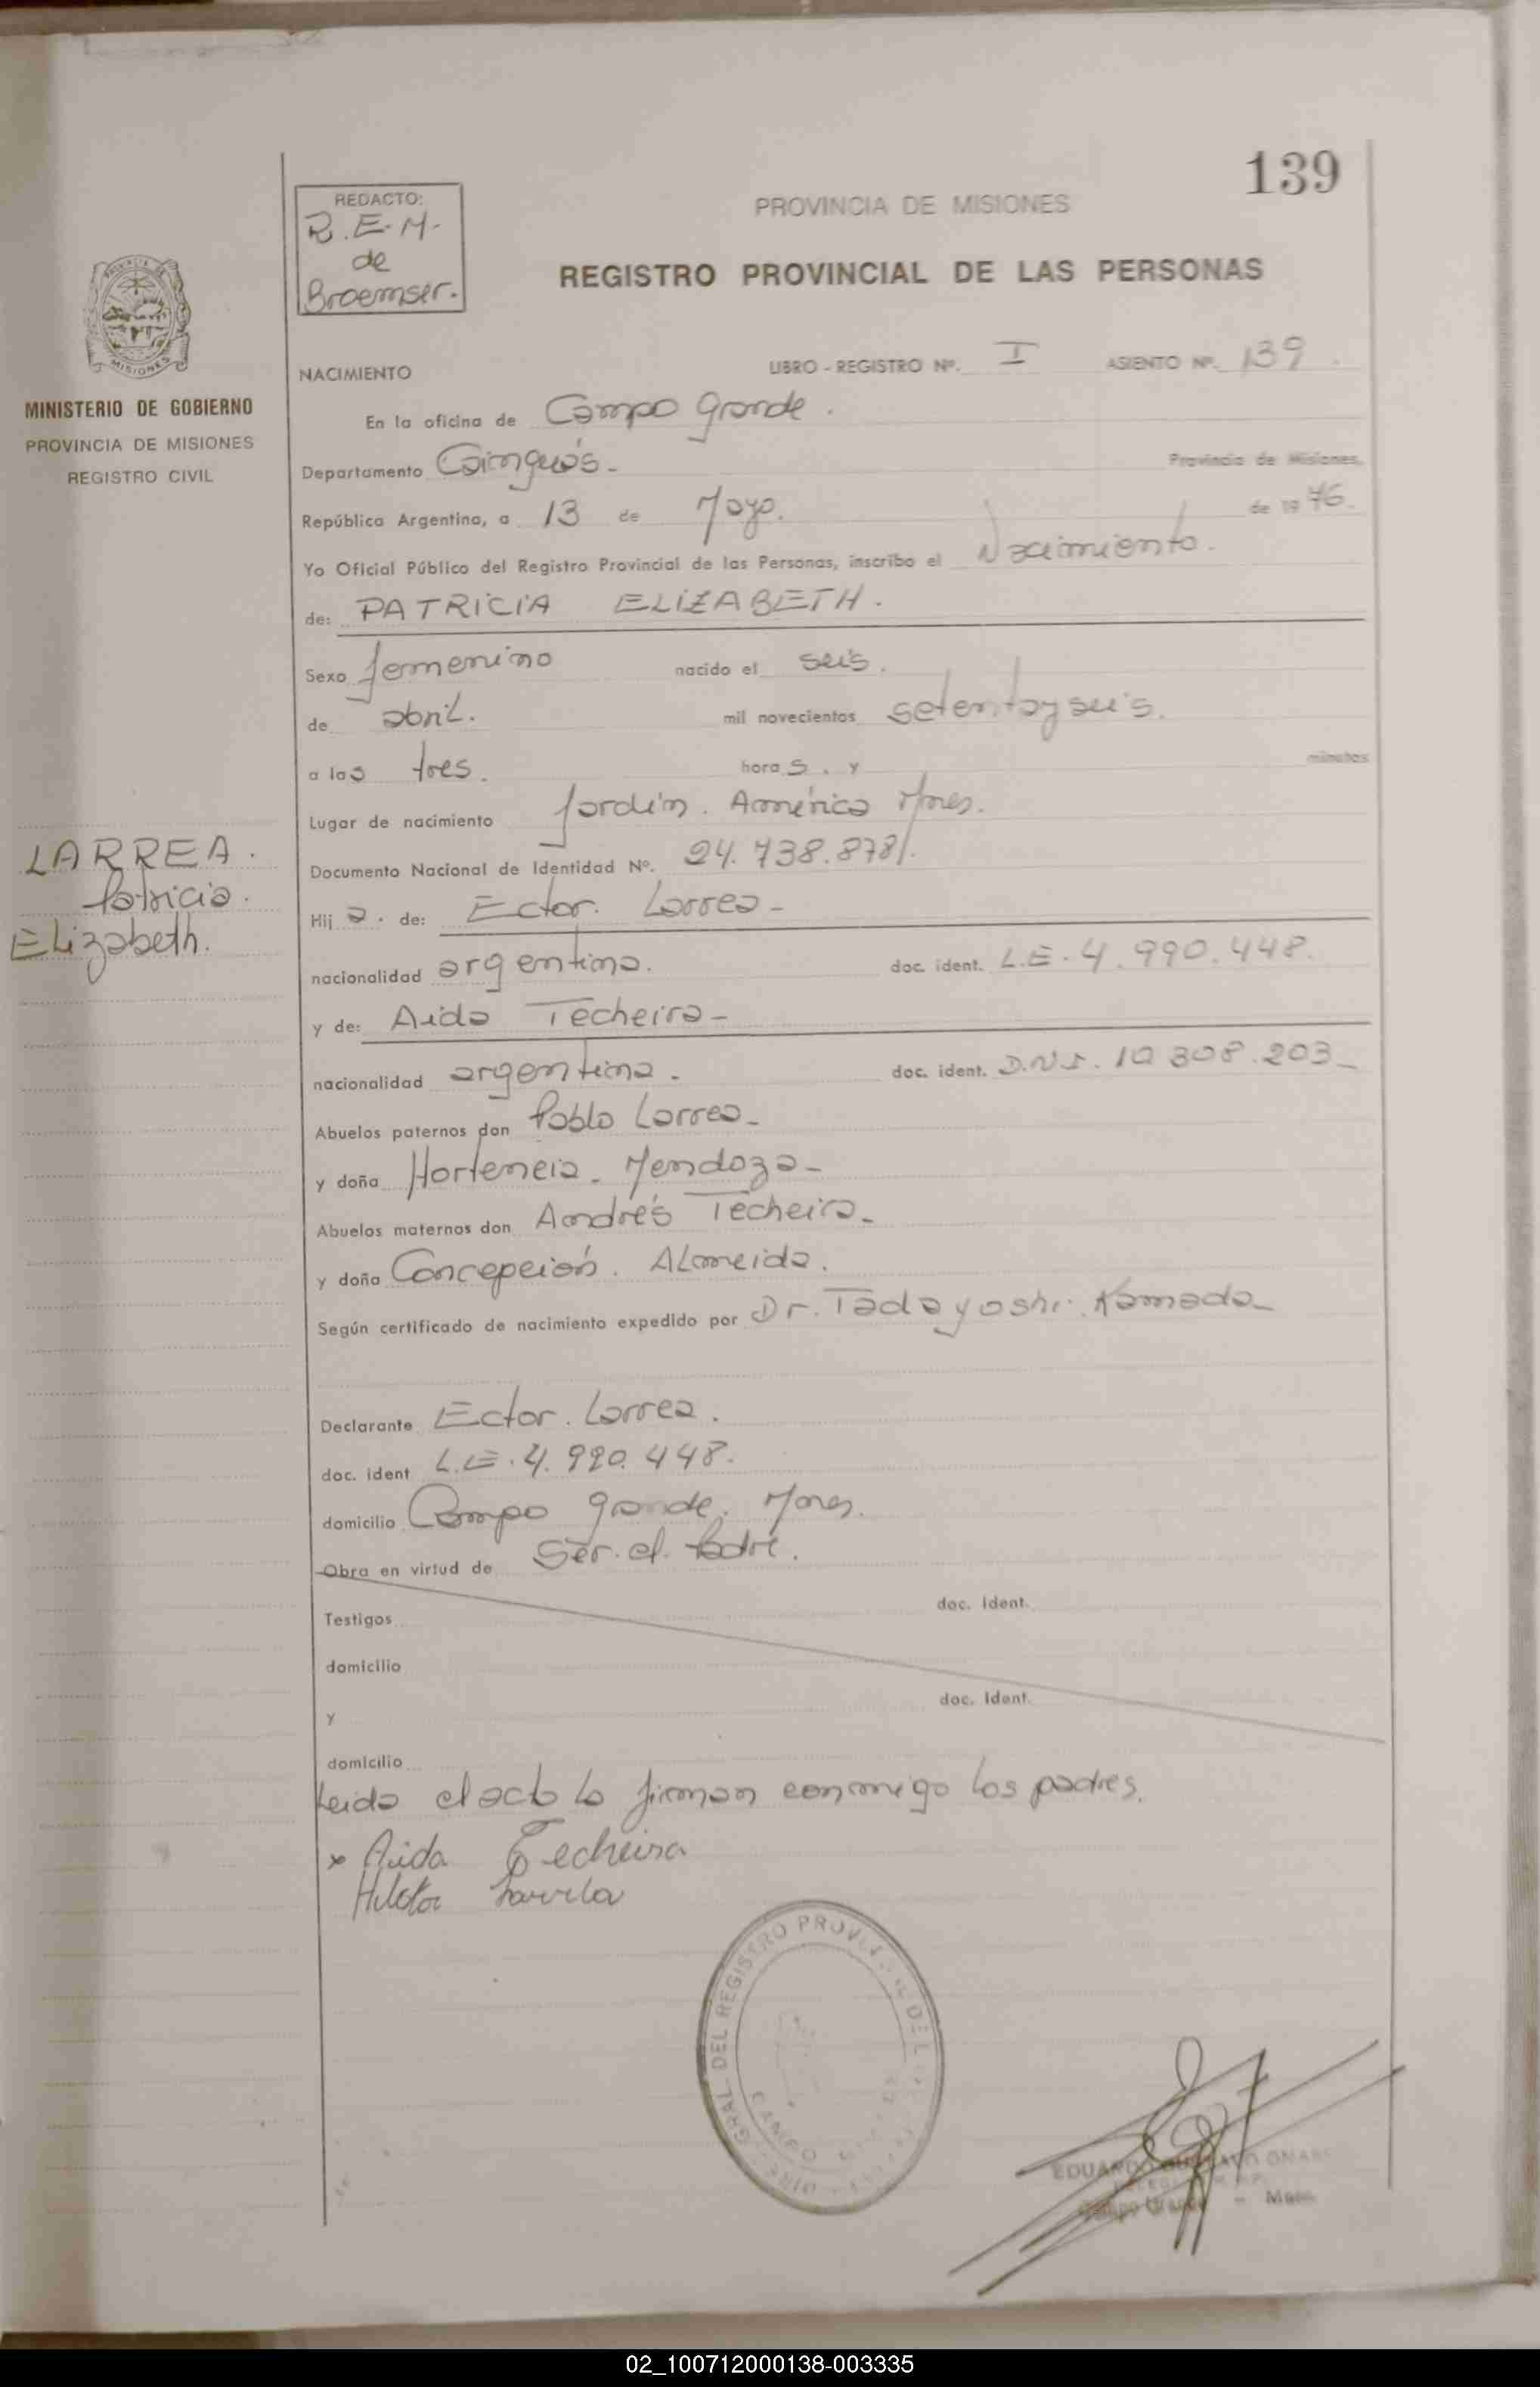 139
REDACTO:
R.E.M.
de
Broemser.
PROVINCIA DE MISIONES
REGISTRO PROVINCIAL DE LAS PERSONAS
MISIONES
MINISTERIO DE GOBIERNO
PROVINCIA DE MISIONES
REGISTRO CIVIL
NACIMIENTO LIBRO - REGISTRO Nº. I ASIENTO Nº. 139
En la oficina de Campo Grande.
Departamento Cainguás. Provincia de Misiones,
República Argentina, a 13 de Mayo. de 1976.
Yo Oficial Público del Registro Provincial de las Personas, inscribo el Nacimiento.
de: PATRICIA ELIZABETH.
Sexo femenino nacido el seis.
de abril. mil novecientos setentayseis.
a las tres. horas. y minutos
Lugar de nacimiento Jardín. América Mnes.
Documento Nacional de Identidad Nº. 24.738.878/.
LARREA.
Patricia.
Elizabeth.
Hija. de: Ector. Larrea-
nacionalidad argentina. doc. ident. L.E. 4.990.448.
y de: Aida Techeira-
nacionalidad argentina. doc. ident. D.N.I. 10 308.203-
Abuelos paternos don Pablo Larrea-
y doña Hortencia. Mendoza-
Abuelos maternos don Andrés Techeira-
y doña Concepción. Almeida.
Según certificado de nacimiento expedido por Dr. Tadayoshi Kamada-
Declarante Ector. Larrea.
doc. ident L.E. 4.990.448.
domicilio Campo grande. Mnes.
Obra en virtud de Ser. el. Padre.
Testigos doc. ident.
domicilio
y doc. ident.
domicilio
Leida el acta la firman conmigo los padres.
x Aida Techeira
GRAL. DEL REGISTRO
CAMPO
EDUARDO
Campo Grande -
02_100712000138-003335